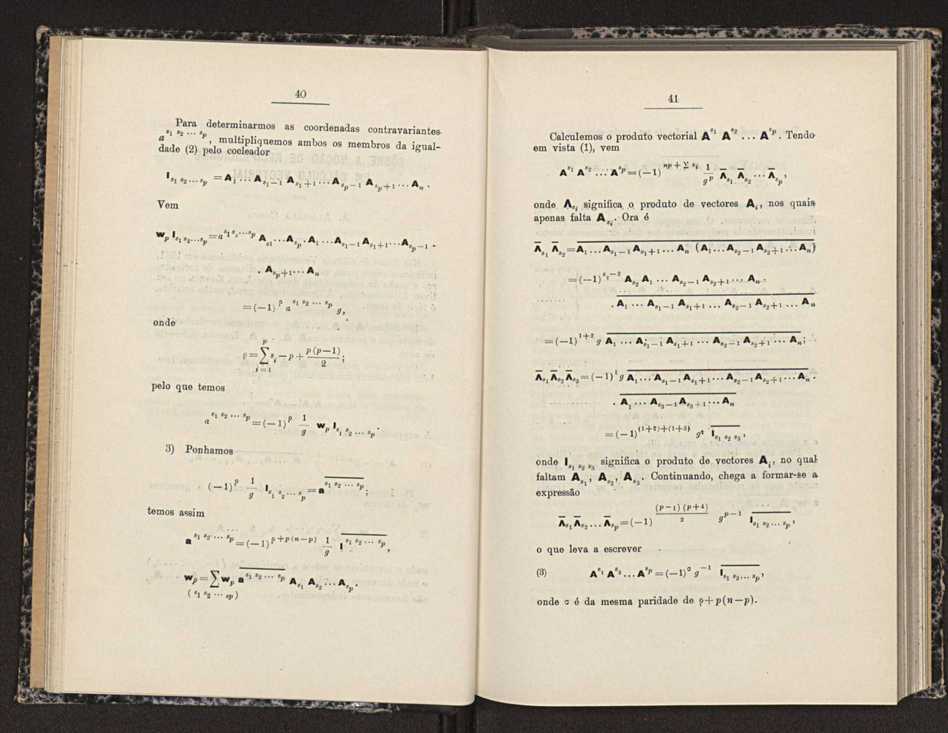 40
Para determinarmos as coordenadas contravariantes
a^{s_1 s_2 ... s_p}, multipliquemos ambos os membros da igual-
dade (2) pelo cocleador
I_{s_1 s_2 ... s_p} = A_1 ... A_{s_1-1} A_{s_1+1} ... A_{s_p-1} A_{s_p+1} ... A_n .
Vem
w_p I_{s_1 s_2 ... s_p} = a^{s_1 s_2 ... s_p} A_{s_1} ... A_{s_p} . A_1 ... A_{s_1-1} A_{s_1+1} ... A_{s_p-1} .
. A_{s_p+1} ... A_n
= (-1)^ρ a^{s_1 s_2 ... s_p} g,
onde
ρ = ∑_{i=1}^{p} s_i - p + p(p-1)/2 ;
pelo que temos
a^{s_1 s_2 ... s_p} = (-1)^ρ 1/g w_p I_{s_1 s_2 ... s_p} .
3) Ponhamos
(-1)^ρ 1/g I_{s_1 s_2 ... s_p} = a^{\overline{s_1 s_2 ... s_p}} ;
temos assim
a^{s_1 s_2 ... s_p} = (-1)^{ρ+p(n-p)} 1/g \overline{I_{s_1 s_2 ... s_p}} ,
w_p = ∑_{(s_1 s_2 ... s_p)} w_p a^{\overline{s_1 s_2 ... s_p}} A_{s_1} A_{s_2} ... A_{s_p} .
41
Calculemos o produto vectorial A^{s_1} A^{s_2} ... A^{s_p}. Tendo
em vista (1), vem
A^{s_1} A^{s_2} ... A^{s_p} = (-1)^{np+∑ s_i} 1/g^p \overline{A}_{s_1} \overline{A}_{s_2} ... \overline{A}_{s_p} ,
onde A_{s_i} significa o produto de vectores A_i, nos quais
apenas falta A_{s_i}. Ora é
\overline{A}_{s_1} \overline{A}_{s_2} = \overline{A_1 ... A_{s_1-1} A_{s_1+1} ... A_n (A_1 ... A_{s_2-1} A_{s_2+1} ... A_n)}
= (-1)^{s_1-2} A_{s_2} A_1 ... A_{s_2-1} A_{s_2+1} ... A_n .
. \overline{A_1 ... A_{s_1-1} A_{s_1+1} ... A_{s_2-1} A_{s_2+1} ... A_n}
= (-1)^{1+2} g \overline{A_1 ... A_{s_1-1} A_{s_1+1} ... A_{s_2-1} A_{s_2+1} ... A_n} ;
\overline{A}_{s_1} \overline{A}_{s_2} \overline{A}_{s_3} = (-1)^1 g \overline{A_1 ... A_{s_1-1} A_{s_1+1} ... A_{s_2-1} A_{s_2+1} ... A_n} .
. \overline{A_1 ... A_{s_3-1} A_{s_3+1} ... A_n}
= (-1)^{(1+2)+(1+3)} g² \overline{I_{s_1 s_2 s_3}} ,
onde I_{s_1 s_2 s_3} significa o produto de vectores A_i, no qual
faltam A_{s_1}, A_{s_2}, A_{s_3}. Continuando, chega a formar-se a
expressão
\overline{A}_{s_1} \overline{A}_{s_2} ... \overline{A}_{s_p} = (-1)^{(p-1)(p+4)/2} g^{p-1} \overline{I_{s_1 s_2 ... s_p}} ,
o que leva a escrever
(3) A^{s_1} A^{s_2} ... A^{s_p} = (-1)^σ g^{-1} \overline{I_{s_1 s_2 ... s_p}} ,
onde σ é da mesma paridade de ρ+p(n-p).